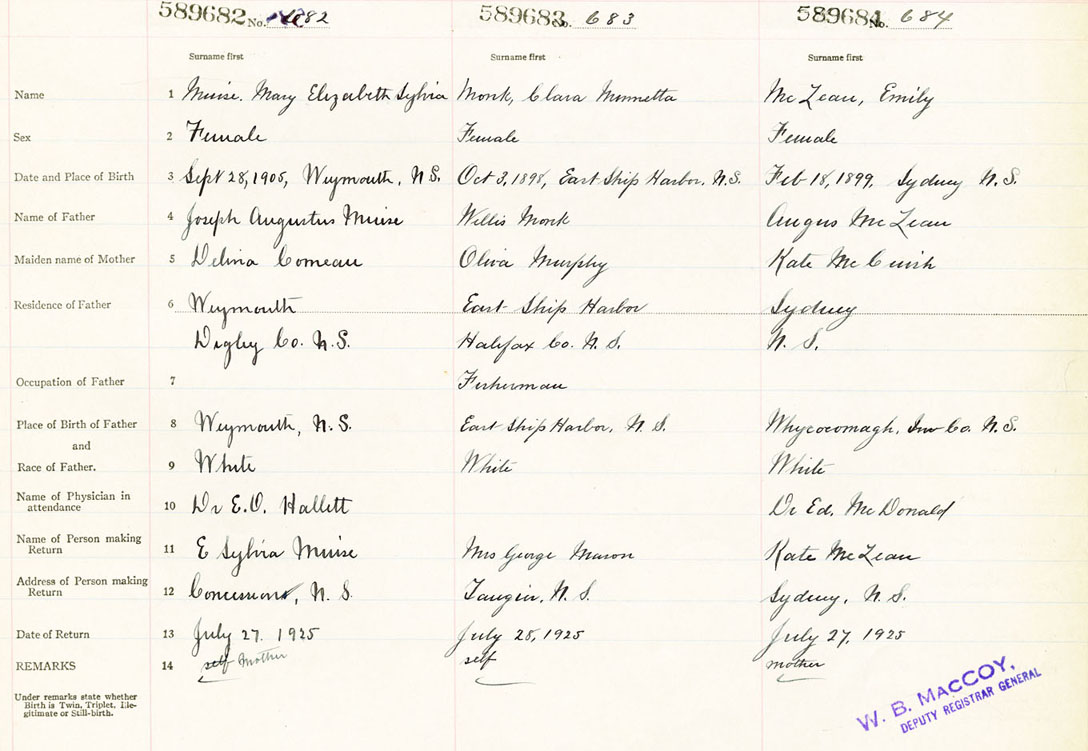 589682 No. 682 589683 No. 683 589684 No. 684
Surname first Surname first Surname first
Name 1 Muise. Mary Elizabeth Sylvia Monk, Clara Minnetta McLean, Emily
Sex 2 Female Female Female
Date and Place of Birth 3 Sept 28, 1905, Weymouth, N.S. Oct 3, 1898, East Ship Harbor, N.S. Feb 18, 1899, Sydney N.S.
Name of Father 4 Joseph Augustus Muise Willis Monk Angus McLean
Maiden name of Mother 5 Delina Comeau Oliva Murphy Kate
Residence of Father 6 Weymouth East Ship Harbor Sydney
Digby Co. N.S. Halifax Co. N.S. N.S.
Occupation of Father 7 Fisherman
Place of Birth of Father 8 Weymouth, N.S. East Ship Harbor, N.S. Whycocomagh, Inv Co. N.S.
and
Race of Father. 9 White White White
Name of Physician in
attendance 10 Dr E.O. Hallett Dr Ed. McDonald
Name of Person making
Return 11 E Sylvia Muise Mrs George Mason Kate McLean
Address of Person making
Return 12 Concession, N.S. Tangier, N.S. Sydney, N.S.
Date of Return 13 July 27. 1925 July 28, 1925 July 27, 1925
REMARKS 14 self Mother self mother
Under remarks state whether
Birth is Twin, Triplet, Ille-
gitimate or Still-birth.
W. B. MACCOY,
DEPUTY REGISTRAR GENERAL